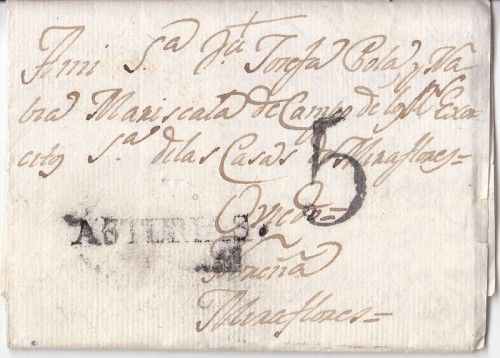 A mi S.ª D.ª Josefa Bola, y Na-
bia Mariscala de Campo de los Rˢ Exer-
citos S.ª de las Casas de Miraflores=
5
Oviedo=
ASTURIAS.
Noreña
Miraflores=